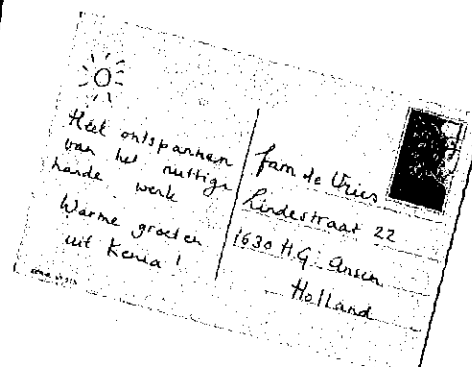 Heel ontspannen
van het nuttige
harde werk
Warme groeten
uit Kenia!
fam de Vries
Lindestraat 22
1630 H.G. Ansen
Holland